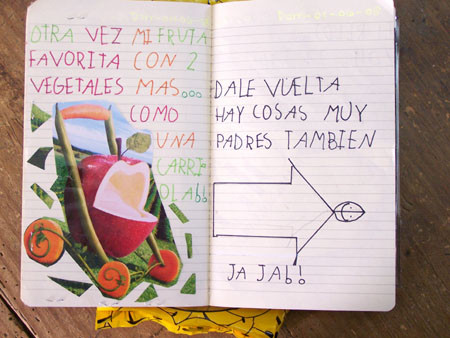 OTRA VEZ MI FRUTA
FAVORITA CON 2
VEGETALES MAS...
COMO
UNA
CARRI
OLA
DALE VUELTA
HAY COSAS MUY
PADRES TAMBIEN
JA JA!